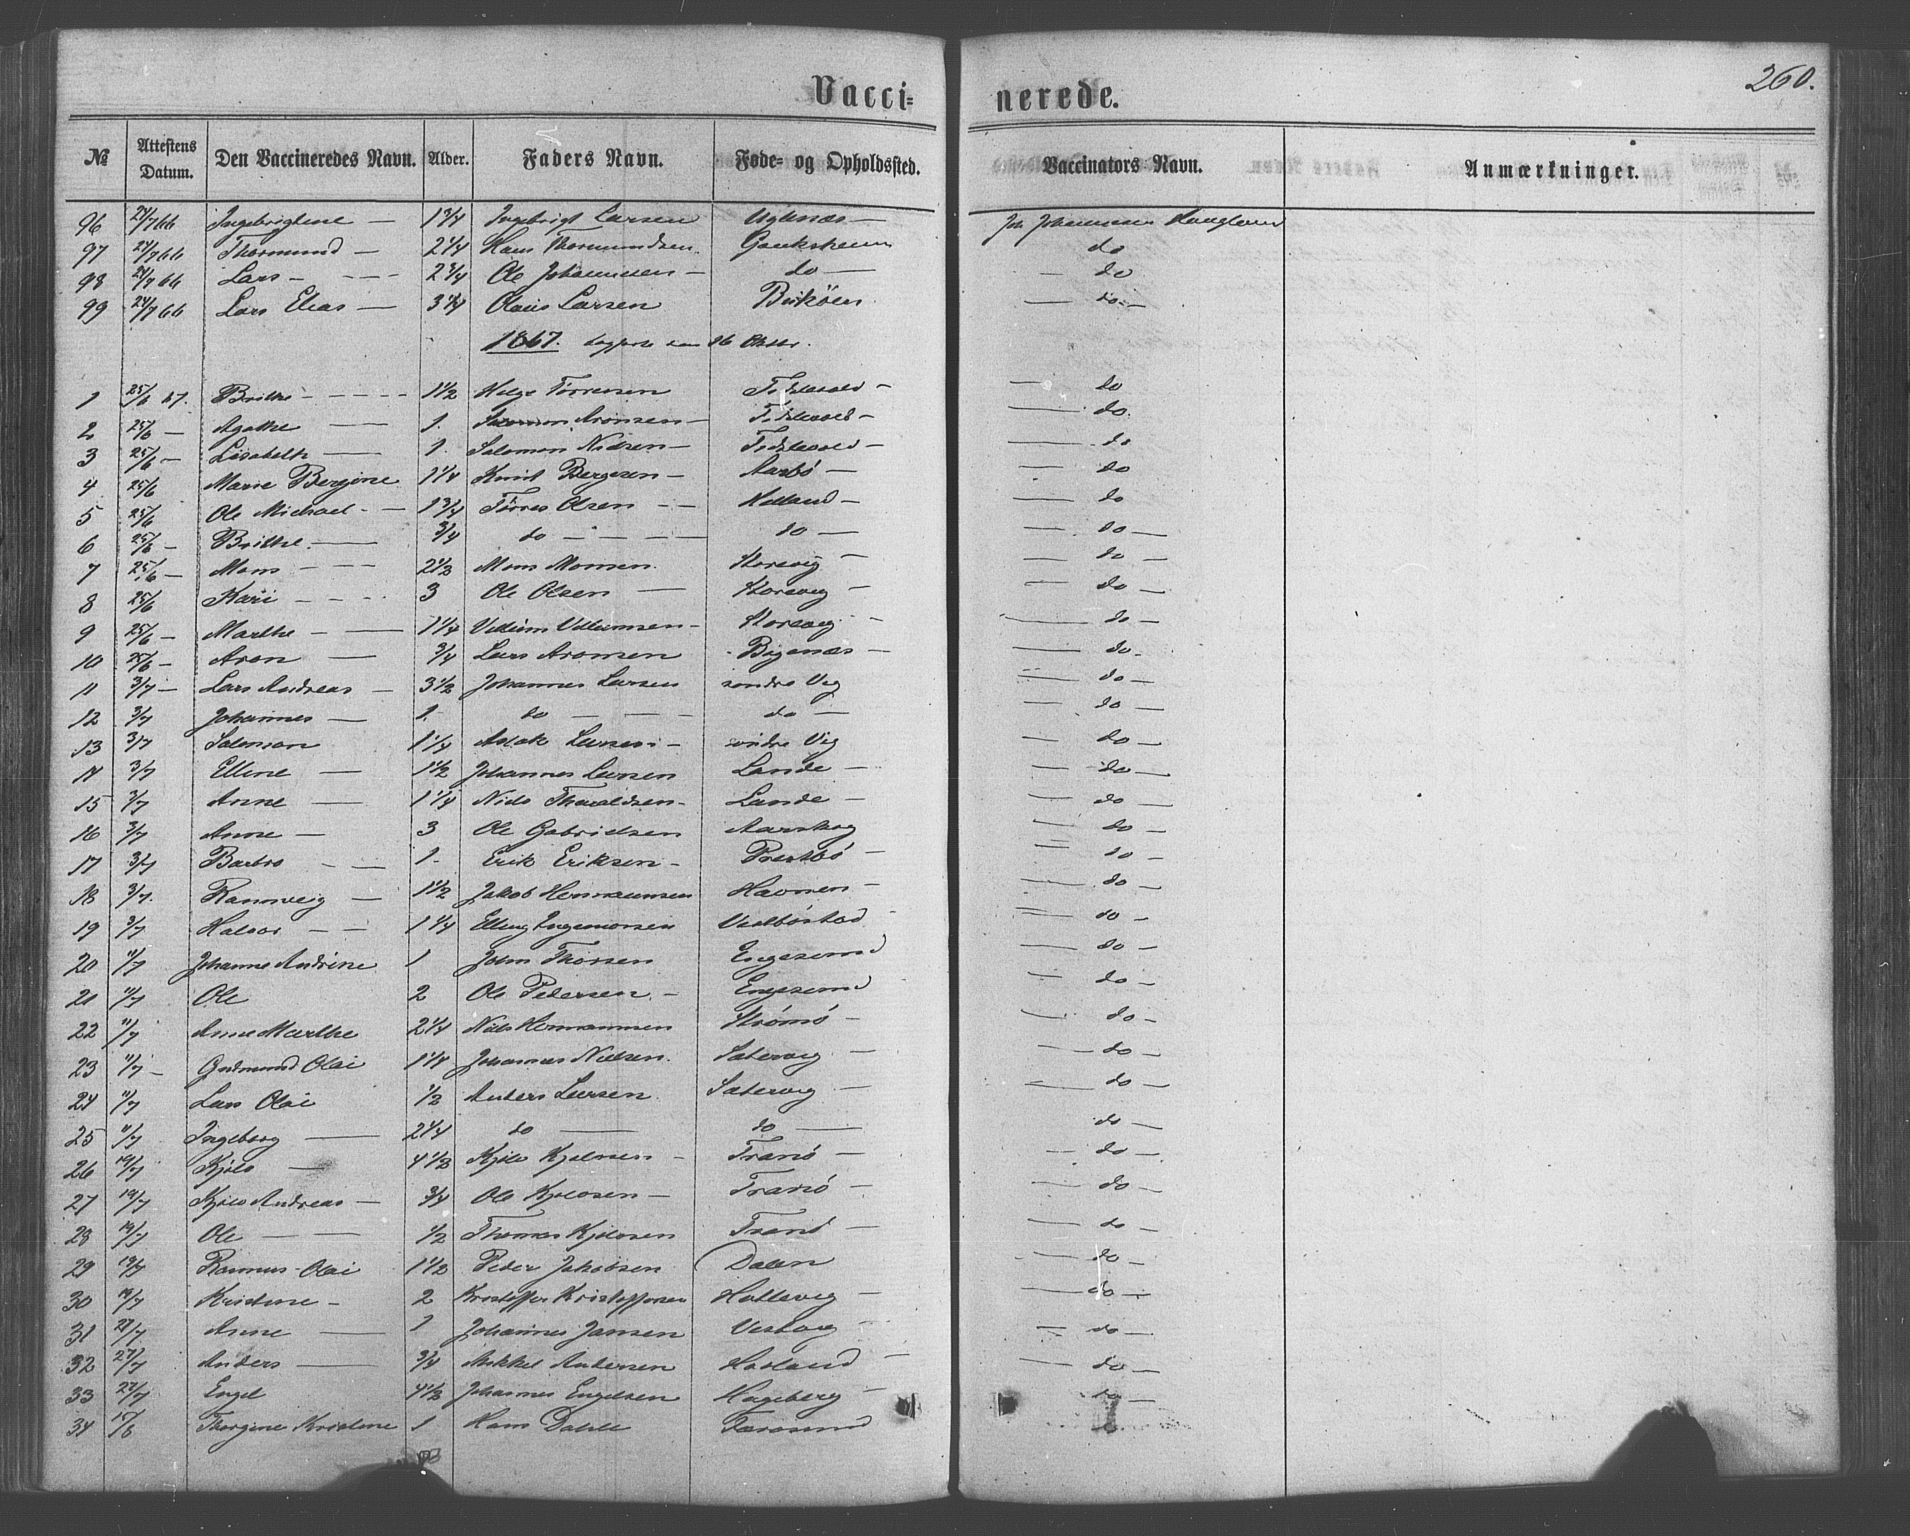 Vacci= nerede. 260.
№ Attestens Datum. Den Vaccineredes Navn. Alder. Faders Navn. Føde= og Opholdssted. Vaccinators Navn. Anmærkninger.
96 24/7 66 Ingebrigtine — 1 3/4 Ingebrigt Larsen Uglenæs — Joh Johannessen Haugland
97 24/7 66 Thormund — 2 1/4 Hans Thormundsen Gouksheim do
98 24/7 66 Lars — 2 3/4 Ole Johannesen — do — — do
99 24/7 66 Lars Elias — 3 1/4 Olaus Larsen — do —
1867. 16
1 25/6 67. Brithe — 1 1/2 Helge Tørresen — do
2 25/6 — Agathe — 1. Aronsen — — do.
3 25/6 — Lisabeth — 1. Salomon Nilsen — — do
4 25/6 Marie Bergine 1 1/4 Knut Bergesen — Aarbø — — do
5 25/6 Ole Michael — 1 3/4 Tørres Olsen — Helland — — do
6 25/6 — Brithe. — 3/4 do — do — — do —
7 25/6 — Mons — 2 1/2 Mons Monsen. Storevig — — do —
8 25/6 Kari — 3 Ole Olsen — Storevig — — do —
9 25/6 — Marthe — 1 1/4 Villum Villumsen — Storevig — — do —
10 25/6 — Aron — 3/4 Lars Aronsen — do —
11 3/7 — Lars Andreas — 3 1/2 Johannes Larsen søndre Vig — do —
12 3/7 Johannes — 1. do — do — — do —
13 3/7 Salomon 1 1/4 Aslak Larsen — søndre Vig — do —
14 3/7 Elline — 1 1/2 Johannes Larsen Lande — — do —
15 3/7 Anne — 1 1/4 Nils Tharaldsen — Lande — — do —
16 3/7 Anne — 3 Ole Gabrielsen Aarskog — do —
17 3/7 Barbro — 1. Erik Eriksen — Præstbø — — do —
18 3/7. Rannveig — 1 1/2 Jakob Hermannsen Havnen — — do —
19 3/7 Halvor — 1 1/4 Elling Ingemorsen Vestbøstad — do —
20 11/7 Johanne Andrine 1 John Thorsen Engesund — do —
21 11/7 Ole 2 Ole Pedersen. — Engesund — do —
22 11/7 Anne Marthe 2 1/4 Nils Hermannsen Strømø — — do —
23 11/7 — Gudmund Olai 1 1/4 Johannes Nilsen. Sætervig — — do —
24 11/7 Lars Olai 1/2 Anders Larsen Sætervig — — do —
25 11/7 Ingeborg — 2 1/4 do — do — do —
26 19/7 Kjels — 4 1/2 — Tranø — — do —
27 19/7 Andreas — 3/4 Ole — Tranø — — do —
28 19/7 Ole — 1/2 Thomas Tranø — — do —
29 19/7 Rasmus Olai 1 1/2 Peder Jakobsen Dalen — do —
30 19/7 Kristine — 2 Kristoffer Kristoffersen Hattevig — — do —
31 27/7 Anne — 1 Johannes Jansen — do —
32 27/7 Anders — 3/4 Mikkel Andersen — — do —
33 27/7 Engel 4 1/2 Johannes Engelsen Hageberg — — do —
34 15/8 Thorgine Kristine 1 Hans Dahle Færøsund